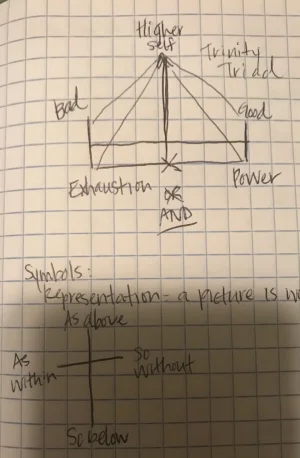 Higher
self
Trinity
Triad
Bad
Good
Exhaustion
Power
OR
AND
Symbols:
Representation - a picture is
As above
As
Within
So
Without
So below